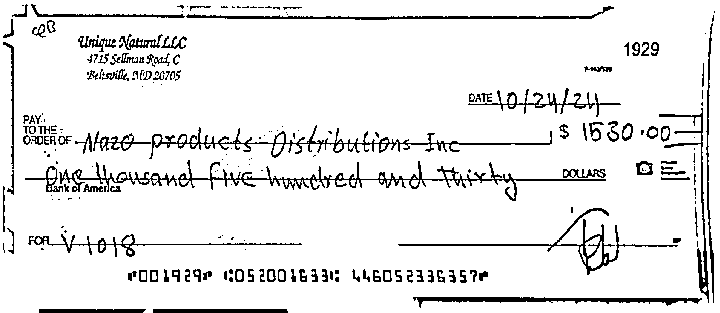 Unique Natural LLC
4715 Sellman Road, C
Beltsville, MD 20705
1929
DATE 10/24/24
PAY TO THE ORDER OF Nazo products Distributions Inc $ 1530.00
One thousand five hundred and thirty DOLLARS
Bank of America
FOR V1018
⑈001929⑈ ⑆052001633⑆ 446052336357⑈